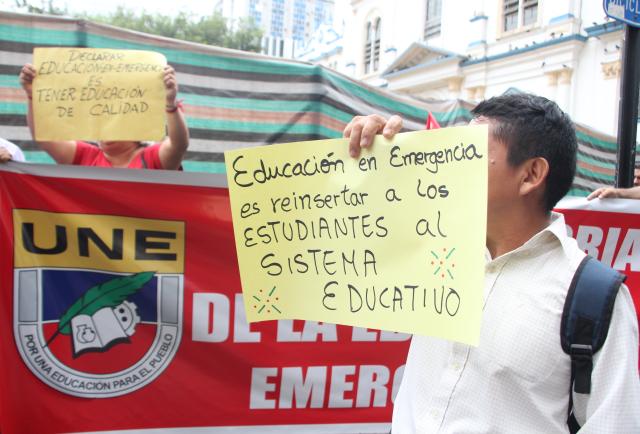 DECLARAR
EDUCACIÓN EN EMERGENCIA
ES
TENER EDUCACIÓN
DE CALIDAD
Educación en Emergencia
es reinsertar a los
ESTUDIANTES al
SISTEMA
EDUCATIVO
UNE
POR UNA EDUCACIÓN PARA EL PUEBLO
DE LA